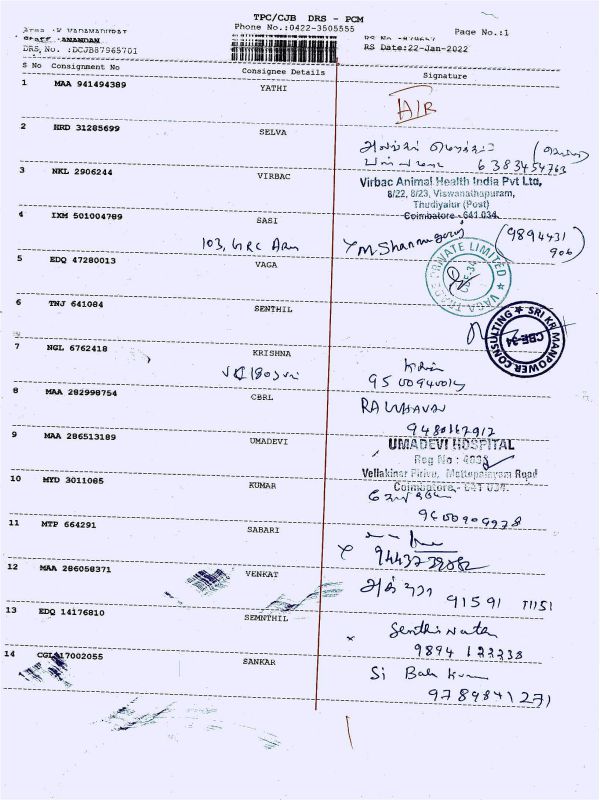 TPC/CJB DRS - PCM
Phone No.:0422-3505555
Page No.:1
Area :K VADAMADURAI
Staff :ANANDAN
DRS, No. :DCJB87965701
RS Date:22-Jan-2022
S No Consignment No Consignee Details Signature
1 MAA 941494389 YATHI
A/R
2 HRD 31285699 SELVA
6383454763
3 NKL 2906244 VIRBAC
Virbac Animal Health India Pvt Ltd,
6/22, 8/23, Viswanathapuram,
Thudiyalur (Post)
Coimbatore - 641 034.
4 IXM 501004789 SASI
103, GRC
9894431
906
5 EDQ 47280013 VAGA
VAGA TRADE PRIVATE LIMITED
CBE-34
6 TNJ 641084 SENTHIL
SRI KRI MANPOWER CONSULTING
CBE-34
7 NGL 6762418 KRISHNA
8 MAA 282998754 CBRL
RAGHAVAN
9480167912
9 MAA 286513189 UMADEVI
UMADEVI HOSPITAL
Reg No : 4038
Vellakinar Pirivu, Mettupalayam Road
Coimbatore - 641 034.
10 MYD 3011085 KUMAR
11 MTP 664291 SABARI
12 MAA 286058371 VENKAT
91591 71151
13 EDQ 14176810 SEMNTHIL
9894 122238
14 CGL 17002055 SANKAR
9789841271